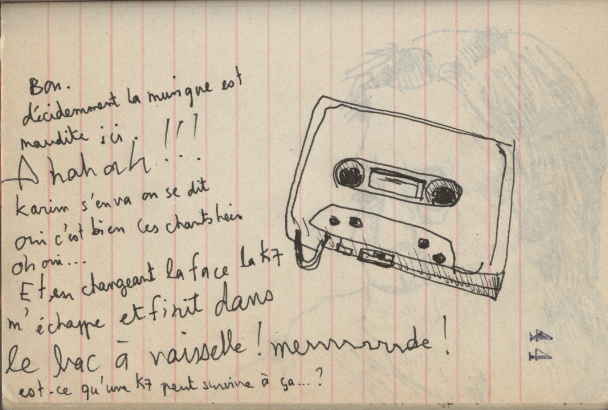 Bon.
décidemment la musique est
maudite ici.
Ahahah!!!
Karim s'en va on se dit
oui c'est bien ces chants hein
oh oui...
Et en changeant la face la K7
m'échappe et finit dans
le bac à vaisselle! merrrrrrde!
est-ce qu'une K7 peut survivre à ça...?
44